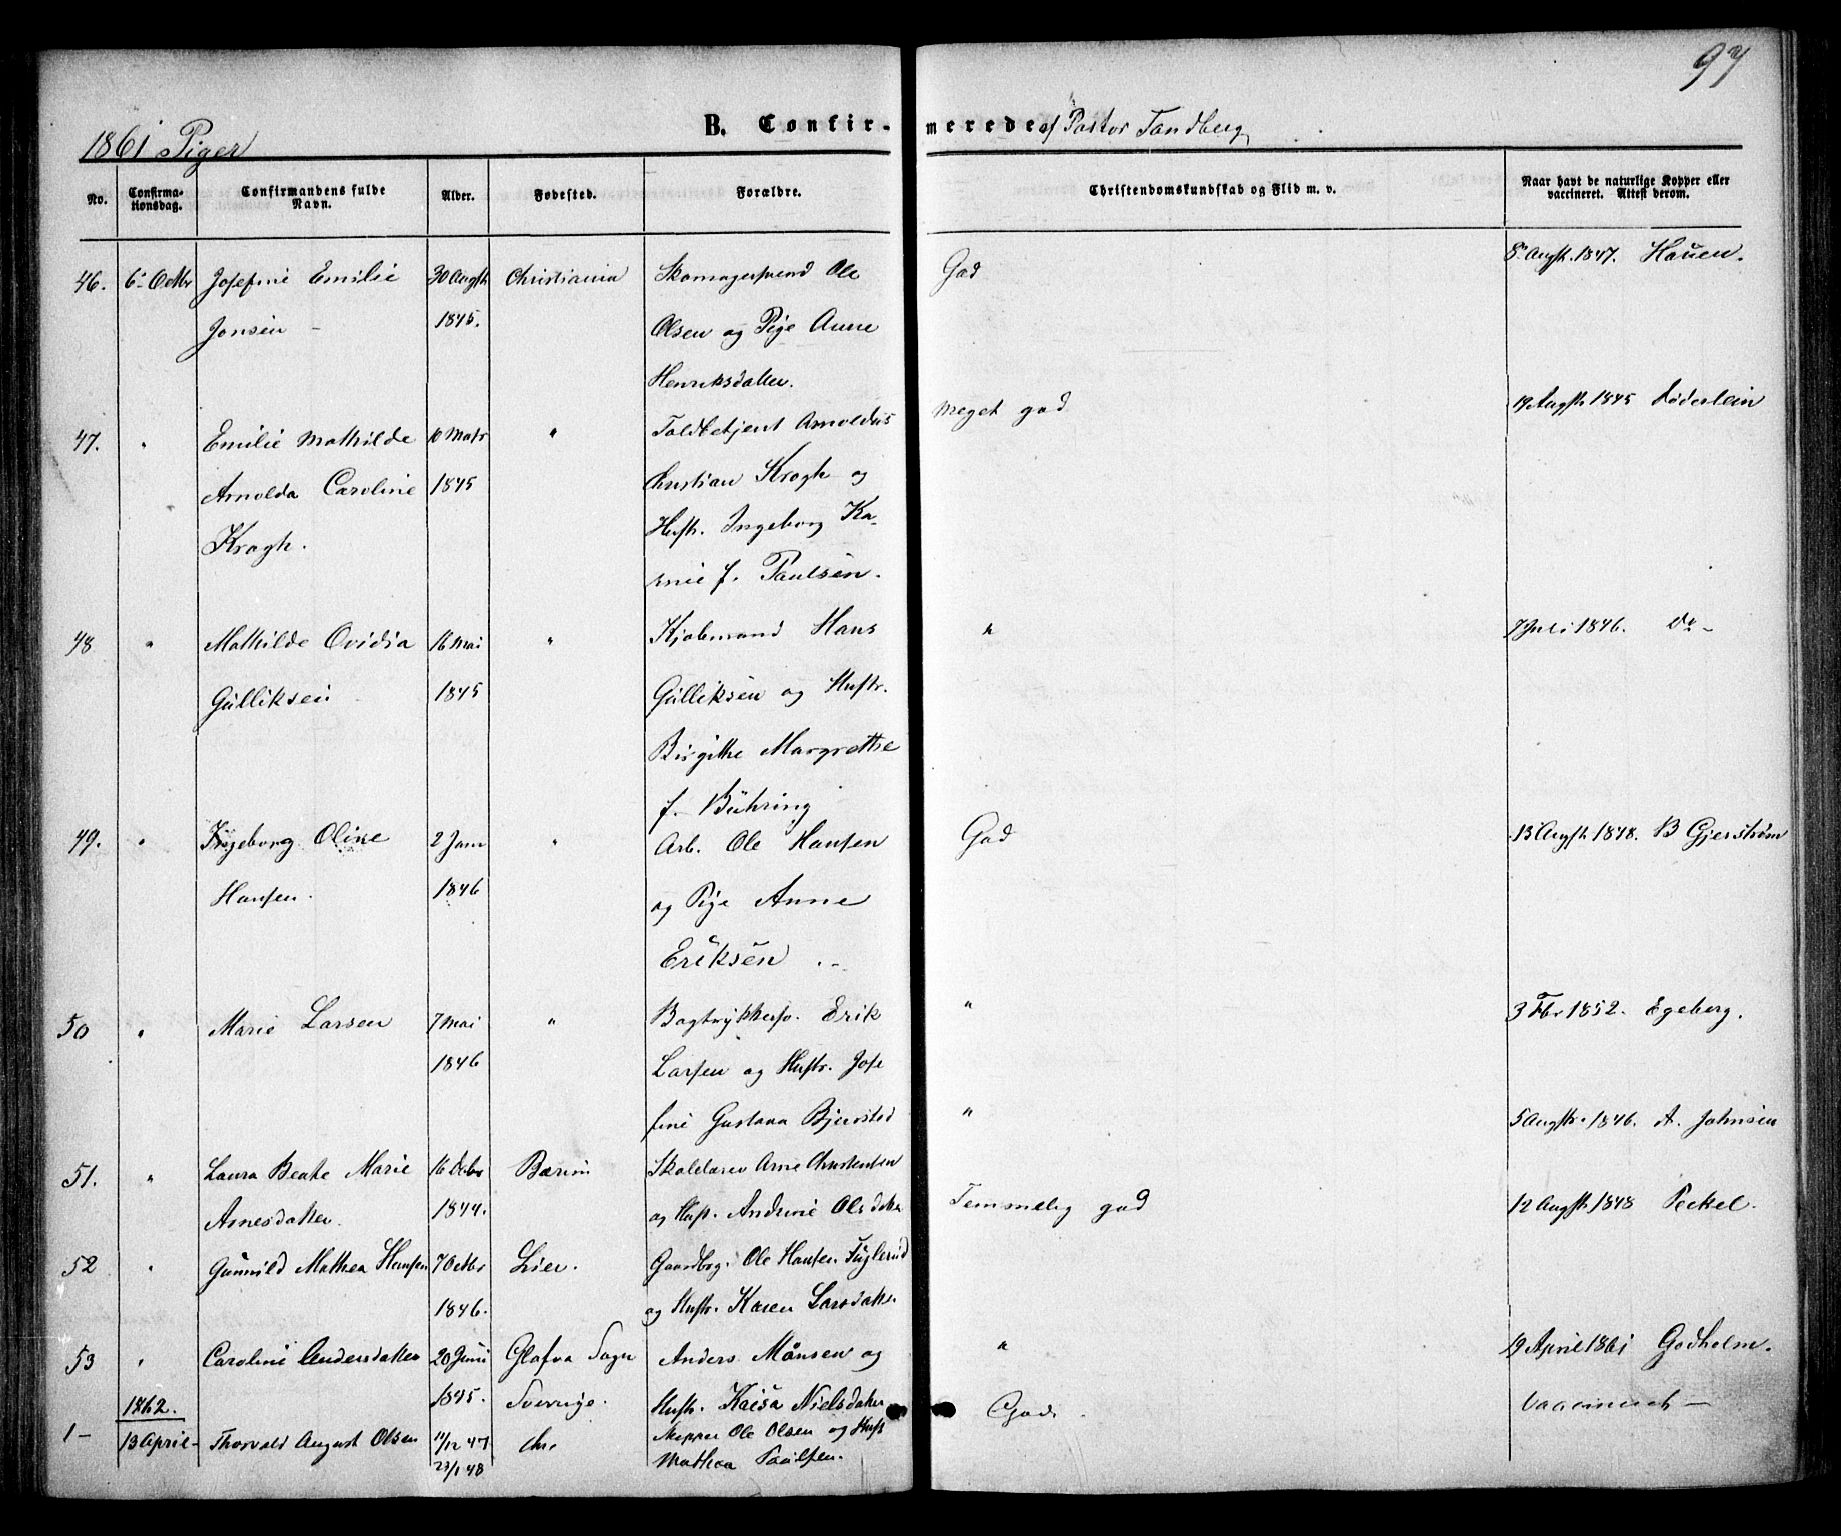 97
B. Confirmerede af Pastor Tandberg
1861 Piger
No.
Confirmationsdag.
Confirmandens fulde Navn.
Alder.
Fødested.
Forældre.
Christendomskundskab og Flid m. v.
Naar havt de naturlige Kopper eller vaccineret. Attest derom.
46. 6 Octbr Josefine Emilie 30 Augst Christiania Skomagersvend Ole God 8 Augst. 1847. Hauen.
Jonsen 1845. Olsen og Pige Anne
Henriksdatter.
47. " Emilie Mathilde 10 Mats " Toldbetjent Arnoldus Meget god 19 Augst 1845 Døderlein
Arnolda Caroline 1845 Christian Krogh og
Krogh. Hustr. Ingeborg Ka-
rine f. Paulsen.
48 " Mathilde Ovidia 16 Mai " Kjøbmand Hans " 7 Juli 1846. do-
Gulliksen 1845 Gulliksen og Hustr.
Birgitte Margrethe
f. Bühring
49. " Ingeborg Oline 2 Janr " Arb. Ole Hansen God 13 Augst 1848. B Gjerstrøm
Hansen. 1846 og Pige Anne
Eriksen
50 " Marie Larsen 7 Mai " Bogtrykkersv. Erik " 3 Fbr 1852. Egeberg.
1846 Larsen og Hustr. Jose
fine Gustava Bjersted " 5 Augstr. 1846. A. Johnsen
51. " Laura Beate Marie 16 Decbr Bærum Skoldarer Arne Christensen
Arnesdatter. 1844. og Hust. Andrine Olsdatter Temmelig god 12 Augst 1848 Peckel.
52 " Gunnild Mathea Hansen 7 Octbr Lier. Gaardbrg. Ole Hansen Fuglerud
1846. og Hustr. Karen Larsdatter
53 " Caroline Andersdatter 20 Juni Glafva Sogn Anders Månsen og " 19 April 1861 Godholm.
1845. Sverrige. Hustr. Kaisa Nielsdatter
1862.
1- 13 April Thorvald August Olsen 11/12 47 Chr. Skipper Ole Olsen og Hust God. Vaccineret -
23/1 48 Mathea Paulsen.